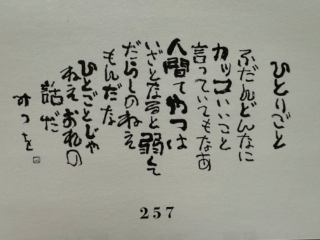 ひとりごと
ふだんどんなに
カッコいいこと
言っていてもなあ
人間てやつは
いざとなると弱くて
だらしのねえ
もんだな
ひとごとじゃ
ねえおれの
話だ
みつを
257